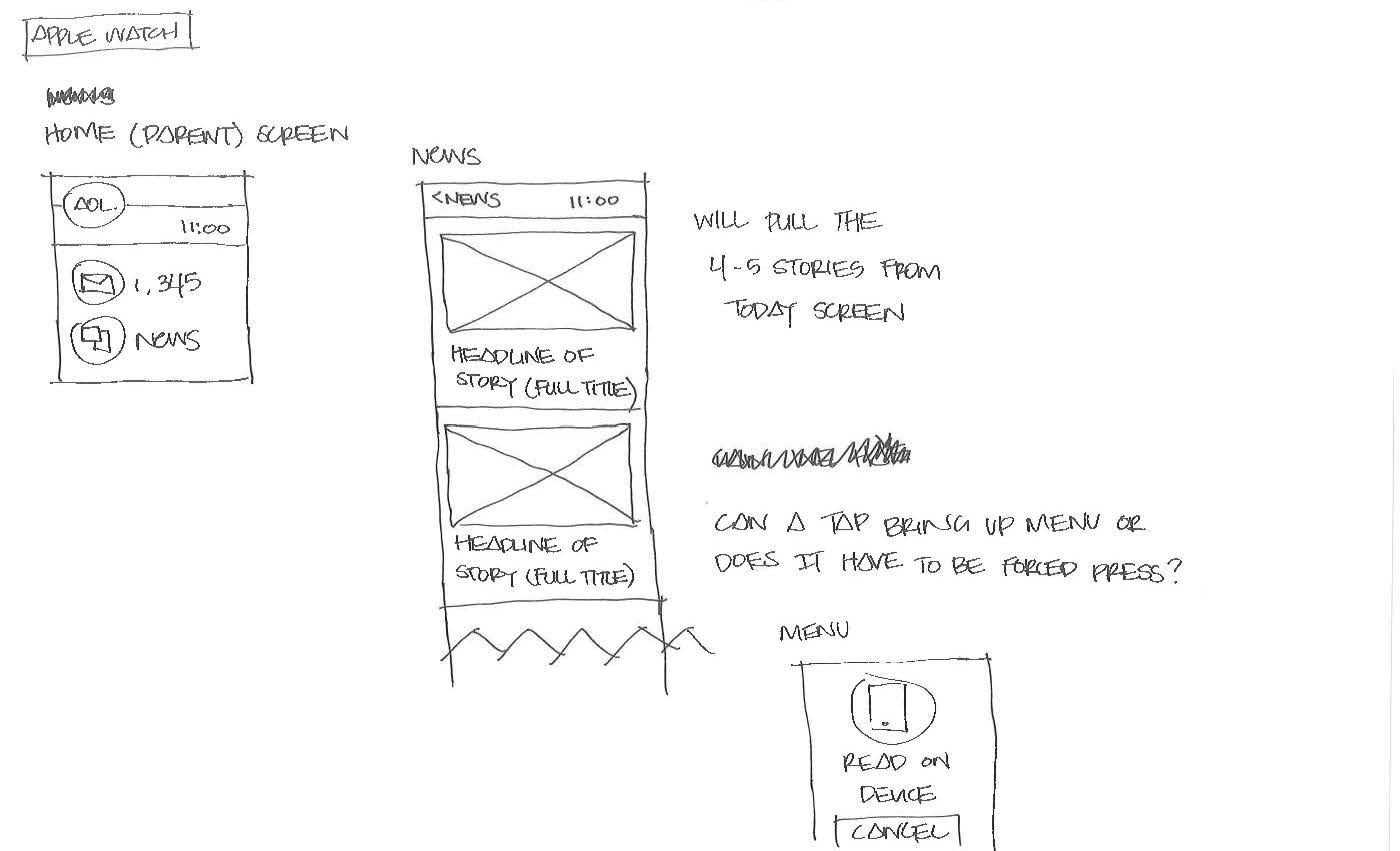 APPLE WATCH
HOME (PARENT) SCREEN
AOL.
11:00
1,345
NEWS
NEWS
<NEWS 11:00
HEADLINE OF
STORY (FULL TITLE)
HEADLINE OF
STORY (FULL TITLE)
WILL PULL THE
4-5 STORIES FROM
TODAY SCREEN
CAN A TAP BRING UP MENU OR
DOES IT HAVE TO BE FORCED PRESS?
MENU
READ ON
DEVICE
CANCEL